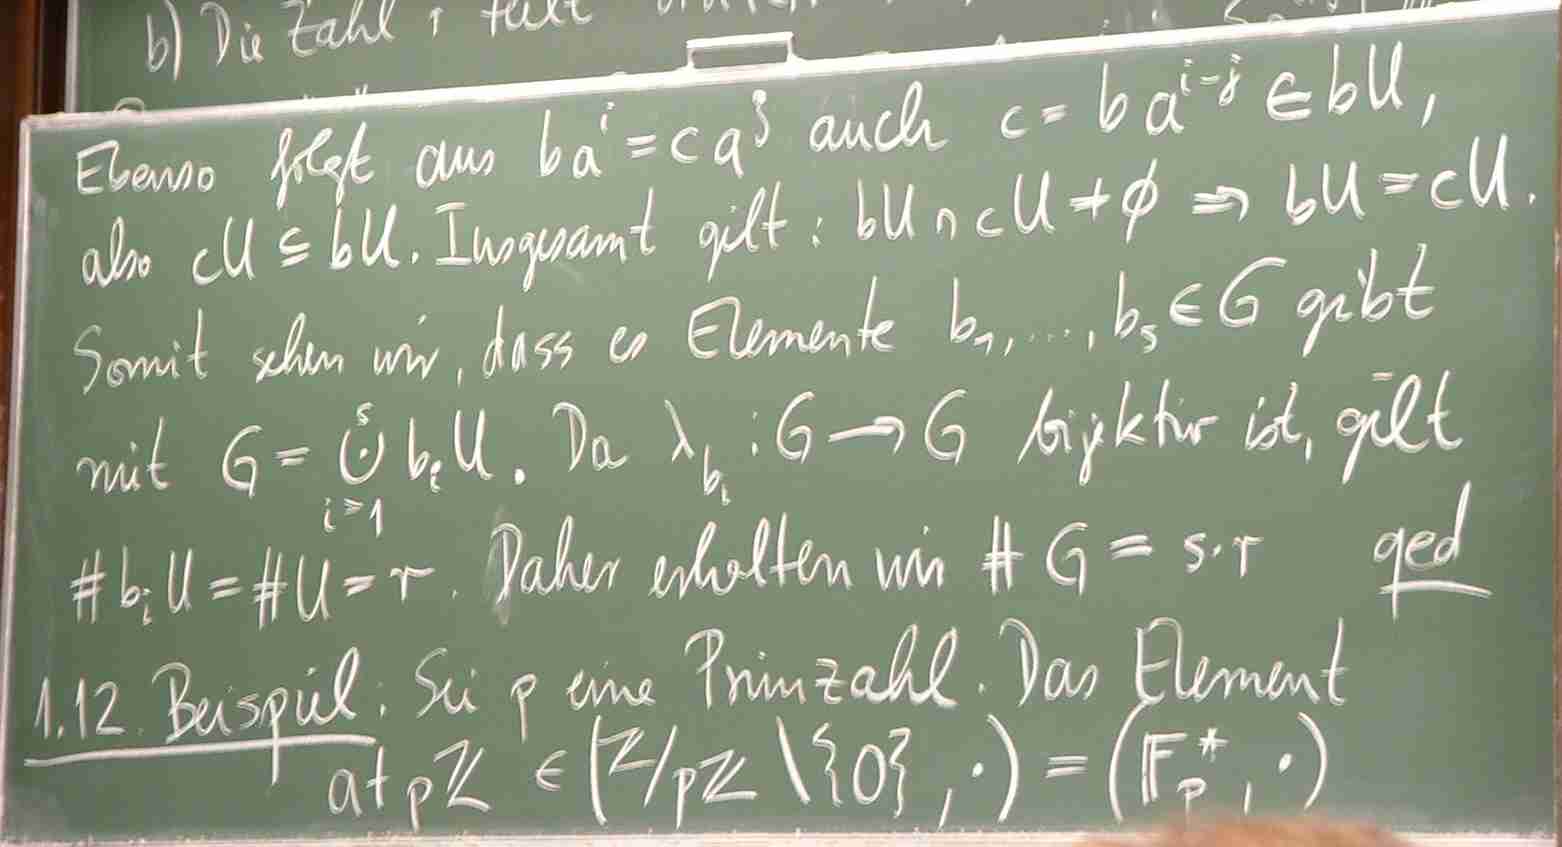 b) Die Zahl r teilt
Ebenso folgt aus ba^i = ca^j auch c = ba^{i-j} ∈ bU,
also cU ⊆ bU. Insgesamt gilt: bU ∩ cU ≠ ∅ ⇒ bU = cU.
Somit sehen wir, dass es Elemente b_1, ..., b_s ∈ G gibt
mit G = ⨃_{i=1}^{s} b_i U. Da λ_{b_i} : G → G bijektiv ist, gilt
# b_i U = #U = r. Daher erhalten wir # G = s·r qed
1.12. Beispiel: Sei p eine Primzahl. Das Element
a+pℤ ∈ (ℤ/pℤ \ {0}, ·) = (𝔽_p^*, ·)